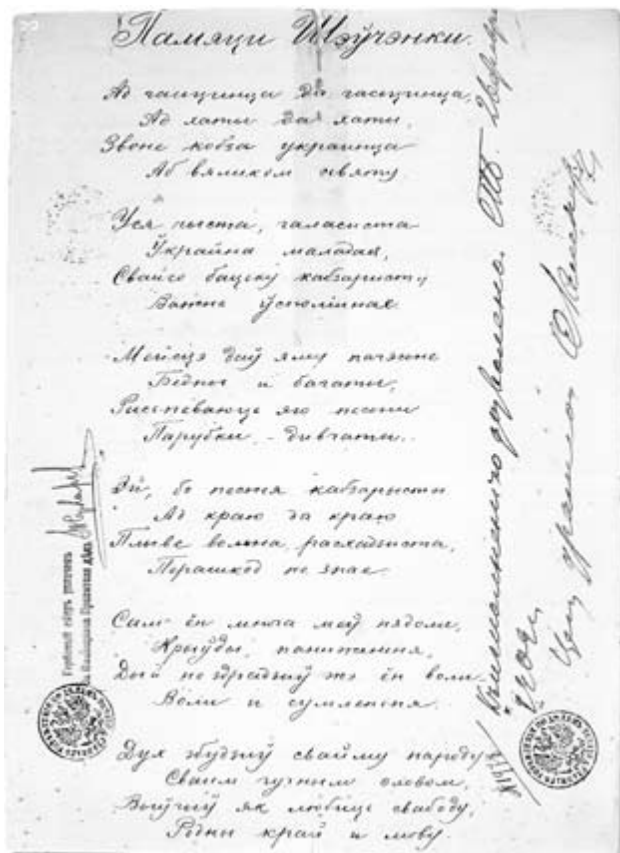 Памяци Шэўчэнки.
Ад гасцинца да гасцинца,
Ад хаты да хаты,
Звоне кобза украинца
Аб вяликом святу.
Уся пыста, галасиста
Украйна маладая,
Свайго бацьку кабзаристу
Важне ўспомінае.
Мейсцэ даў яму пачэсне
Бедны и багаты,
Распеваюць яго песни
Парубки - дивчаты.
Эй, бо песня кабзарысты
Ад краю да краю
Плыве вольна, расхадзиста,
Перашкод не знае.
Сам ён многа меў нядоли,
Крыўды, паниженьня,
Дый не здрадзиў жэ ён воли
Воли и сумленьня.
Дух збудзиў свайму народу
Сваим гучным словом,
Выучиў як любиць свабоду,
Родны край и мову.
Гербовый сборъ уплоченъ
дозволено. СПБ.